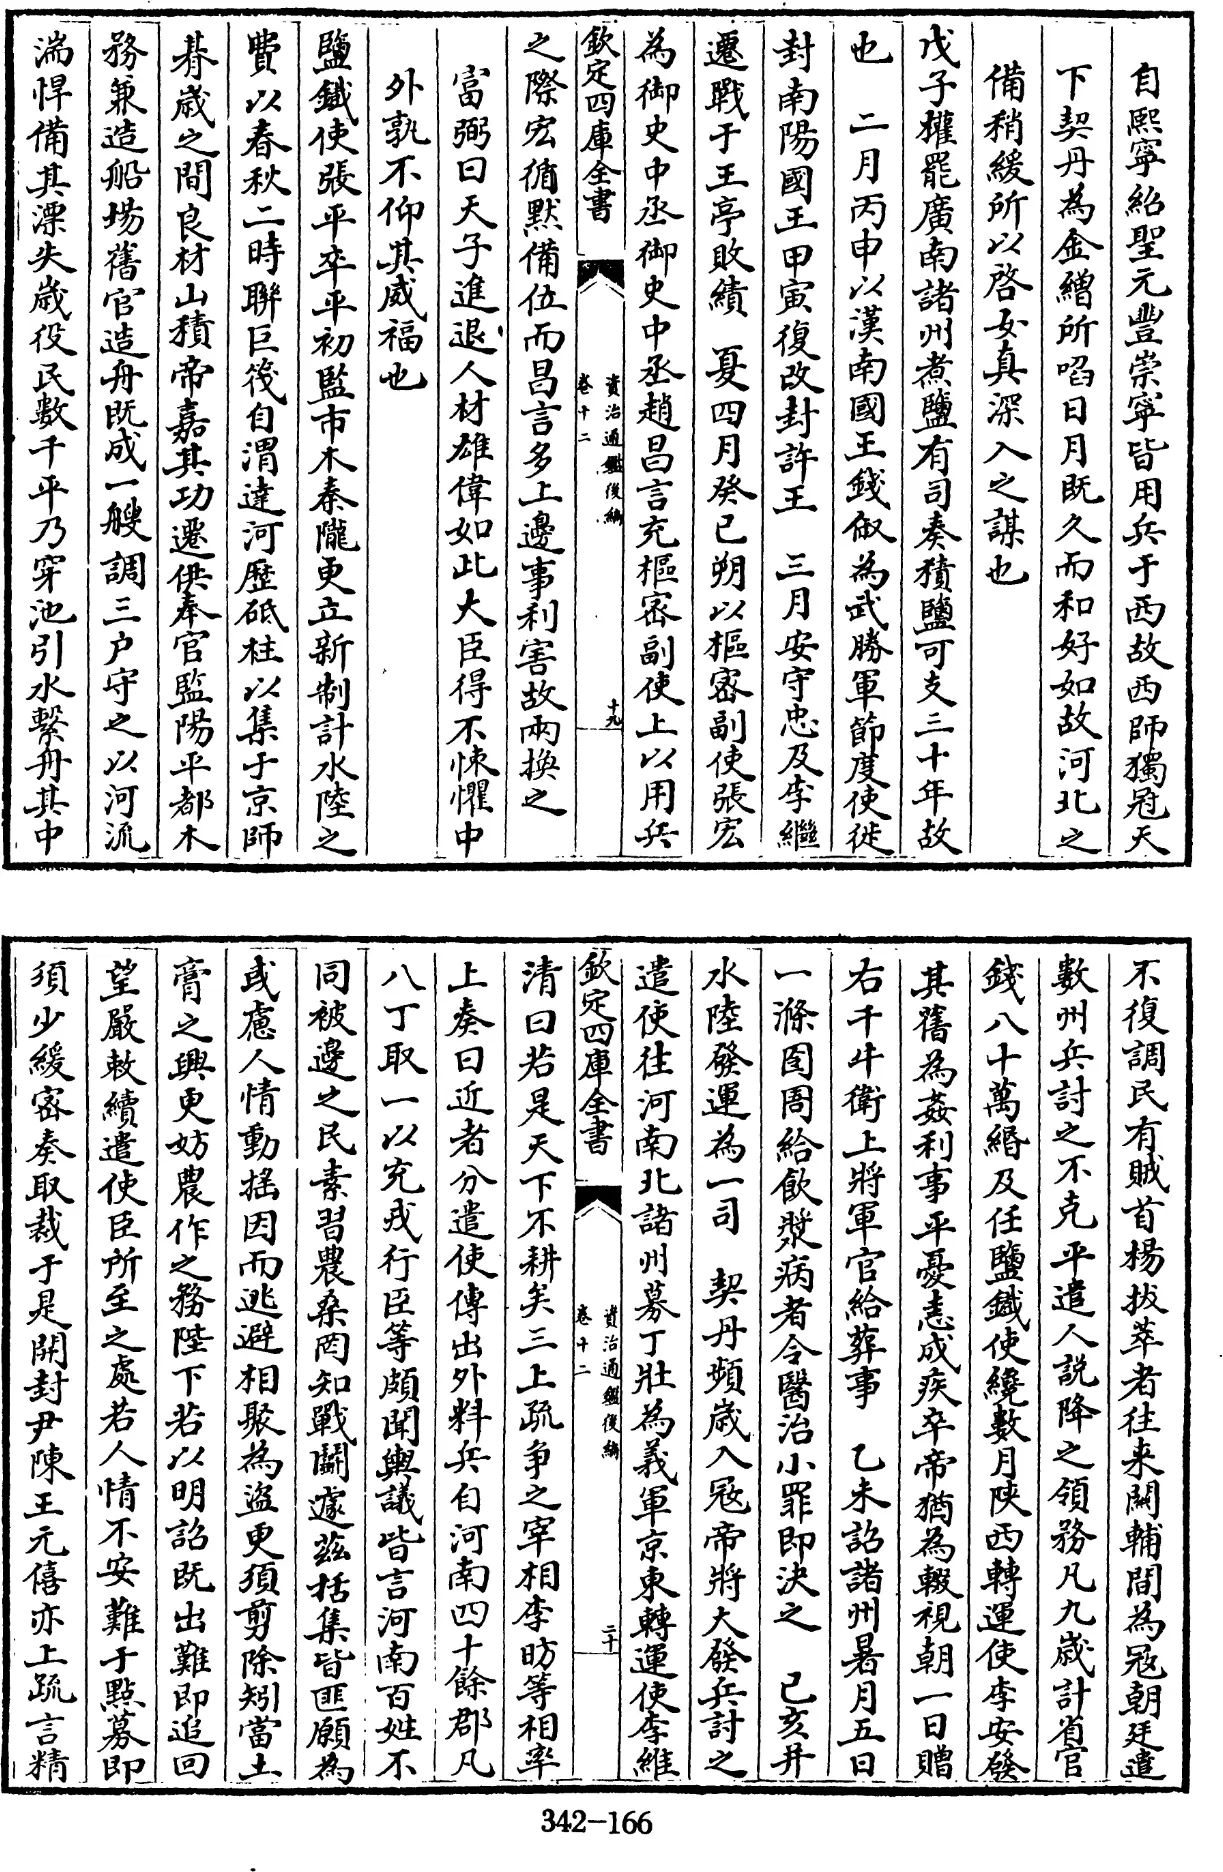 自熙寧紹聖元豐崇寧皆用兵于西故西師獨冠天
下契丹為金繒所啗日月既久而和好如故河北之
備稍緩所以啓女真深入之謀也
戊子權罷廣南諸州煮鹽有司奏積鹽可支三十年故
也　二月丙申以漢南國王錢俶為武勝軍節度使徙
封南陽國王甲寅復改封許王　三月安守忠及李繼
遷戰于王亭敗績　夏四月癸巳朔以樞密副使張宏
為御史中丞御史中丞趙昌言充樞密副使上以用兵
欽定四庫全書
資治通鑑後編
卷十二
十九
之際宏循默備位而昌言多上邊事利害故兩換之
富弼曰天子進退人材雄偉如此大臣得不悚懼中
外孰不仰其威福也
鹽鐵使張平卒平初監市木秦隴更立新制計水陸之
費以春秋二時聯巨筏自渭達河歷砥柱以集于京師
朞歲之間良材山積帝嘉其功遷供奉官監陽平都木
務兼造船場舊官造舟既成一艘調三户守之以河流
湍悍備其漂失歲役民數千平乃穿池引水繫舟其中
不復調民有賊首楊拔萃者往来關輔間為冦朝廷遣
數州兵討之不克平遣人説降之領務凡九歲計省官
錢八十萬緡及任鹽鐵使纔數月陜西轉運使李安發
其舊為姦利事平憂恚成疾卒帝猶為輟視朝一日贈
右千牛衛上將軍官給葬事　乙未詔諸州暑月五日
一滌囹圄給飲漿病者令醫治小罪即決之　己亥并
水陸發運為一司　契丹頻歲入冦帝將大發兵討之
遣使往河南北諸州募丁壯為義軍京東轉運使李維
欽定四庫全書
資治通鑑後編
卷十二
二十
清曰若是天下不耕矣三上疏争之宰相李昉等相率
上奏曰近者分遣使傳出外料兵自河南四十餘郡凡
八丁取一以充戎行臣等頗聞輿議皆言河南百姓不
同被邊之民素習農桑罔知戰鬬遽兹括集皆匪願為
或慮人情動摇因而逃避相聚為盜更須剪除矧當土
膏之興更妨農作之務陛下若以明詔既出難即追回
望嚴敕續遣使臣所至之處若人情不安難于點募即
須少緩密奏取裁于是開封尹陳王元僖亦上疏言精
342-166